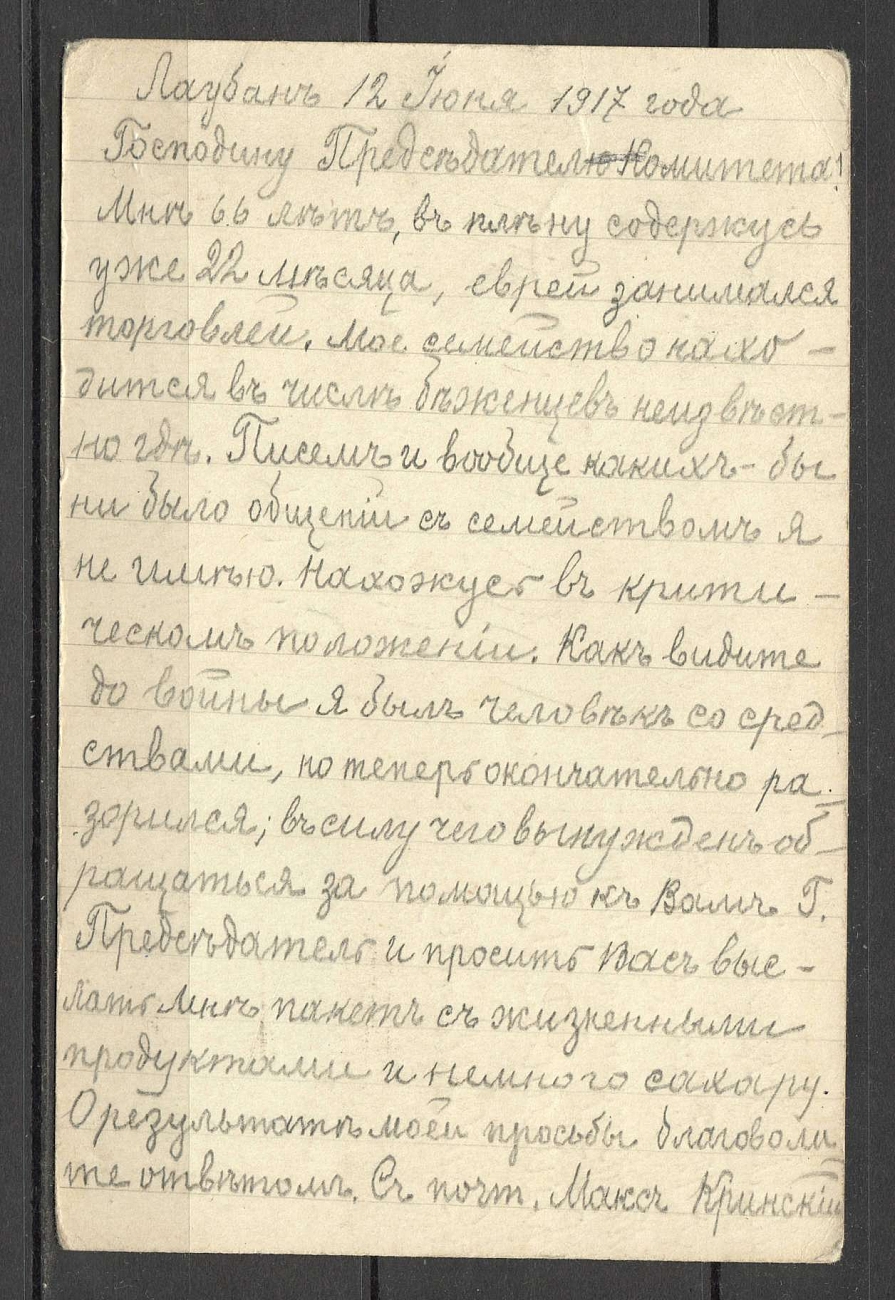 Лаубанъ 12 Іюня 1917 года
Господину Предсѣдателю Комитета!
Мнѣ 66 лѣтъ, въ плѣну содержусь
уже 22 мѣсяца, еврей занимался
торговлей. Мое семейство нахо-
дится въ числѣ бѣженцевъ неизвѣст-
но гдѣ. Писемъ и вообще какихъ-бы
ни было общеній съ семействомъ я
не имѣю. Нахожусь въ крити-
ческомъ положеніи. Какъ видите
до войны я былъ человѣкъ со сред-
ствами, но теперь окончательно ра-
зорился; въ силу чего вынужденъ об-
ращаться за помощью къ Вамъ Г.
Предсѣдатель и просить Васъ выс-
лать мнѣ пакетъ съ жизненными
продуктами и немного сахару.
О результатѣ моей просьбы благоволи
те отвѣтомъ. Съ почт. Максъ Кринскій